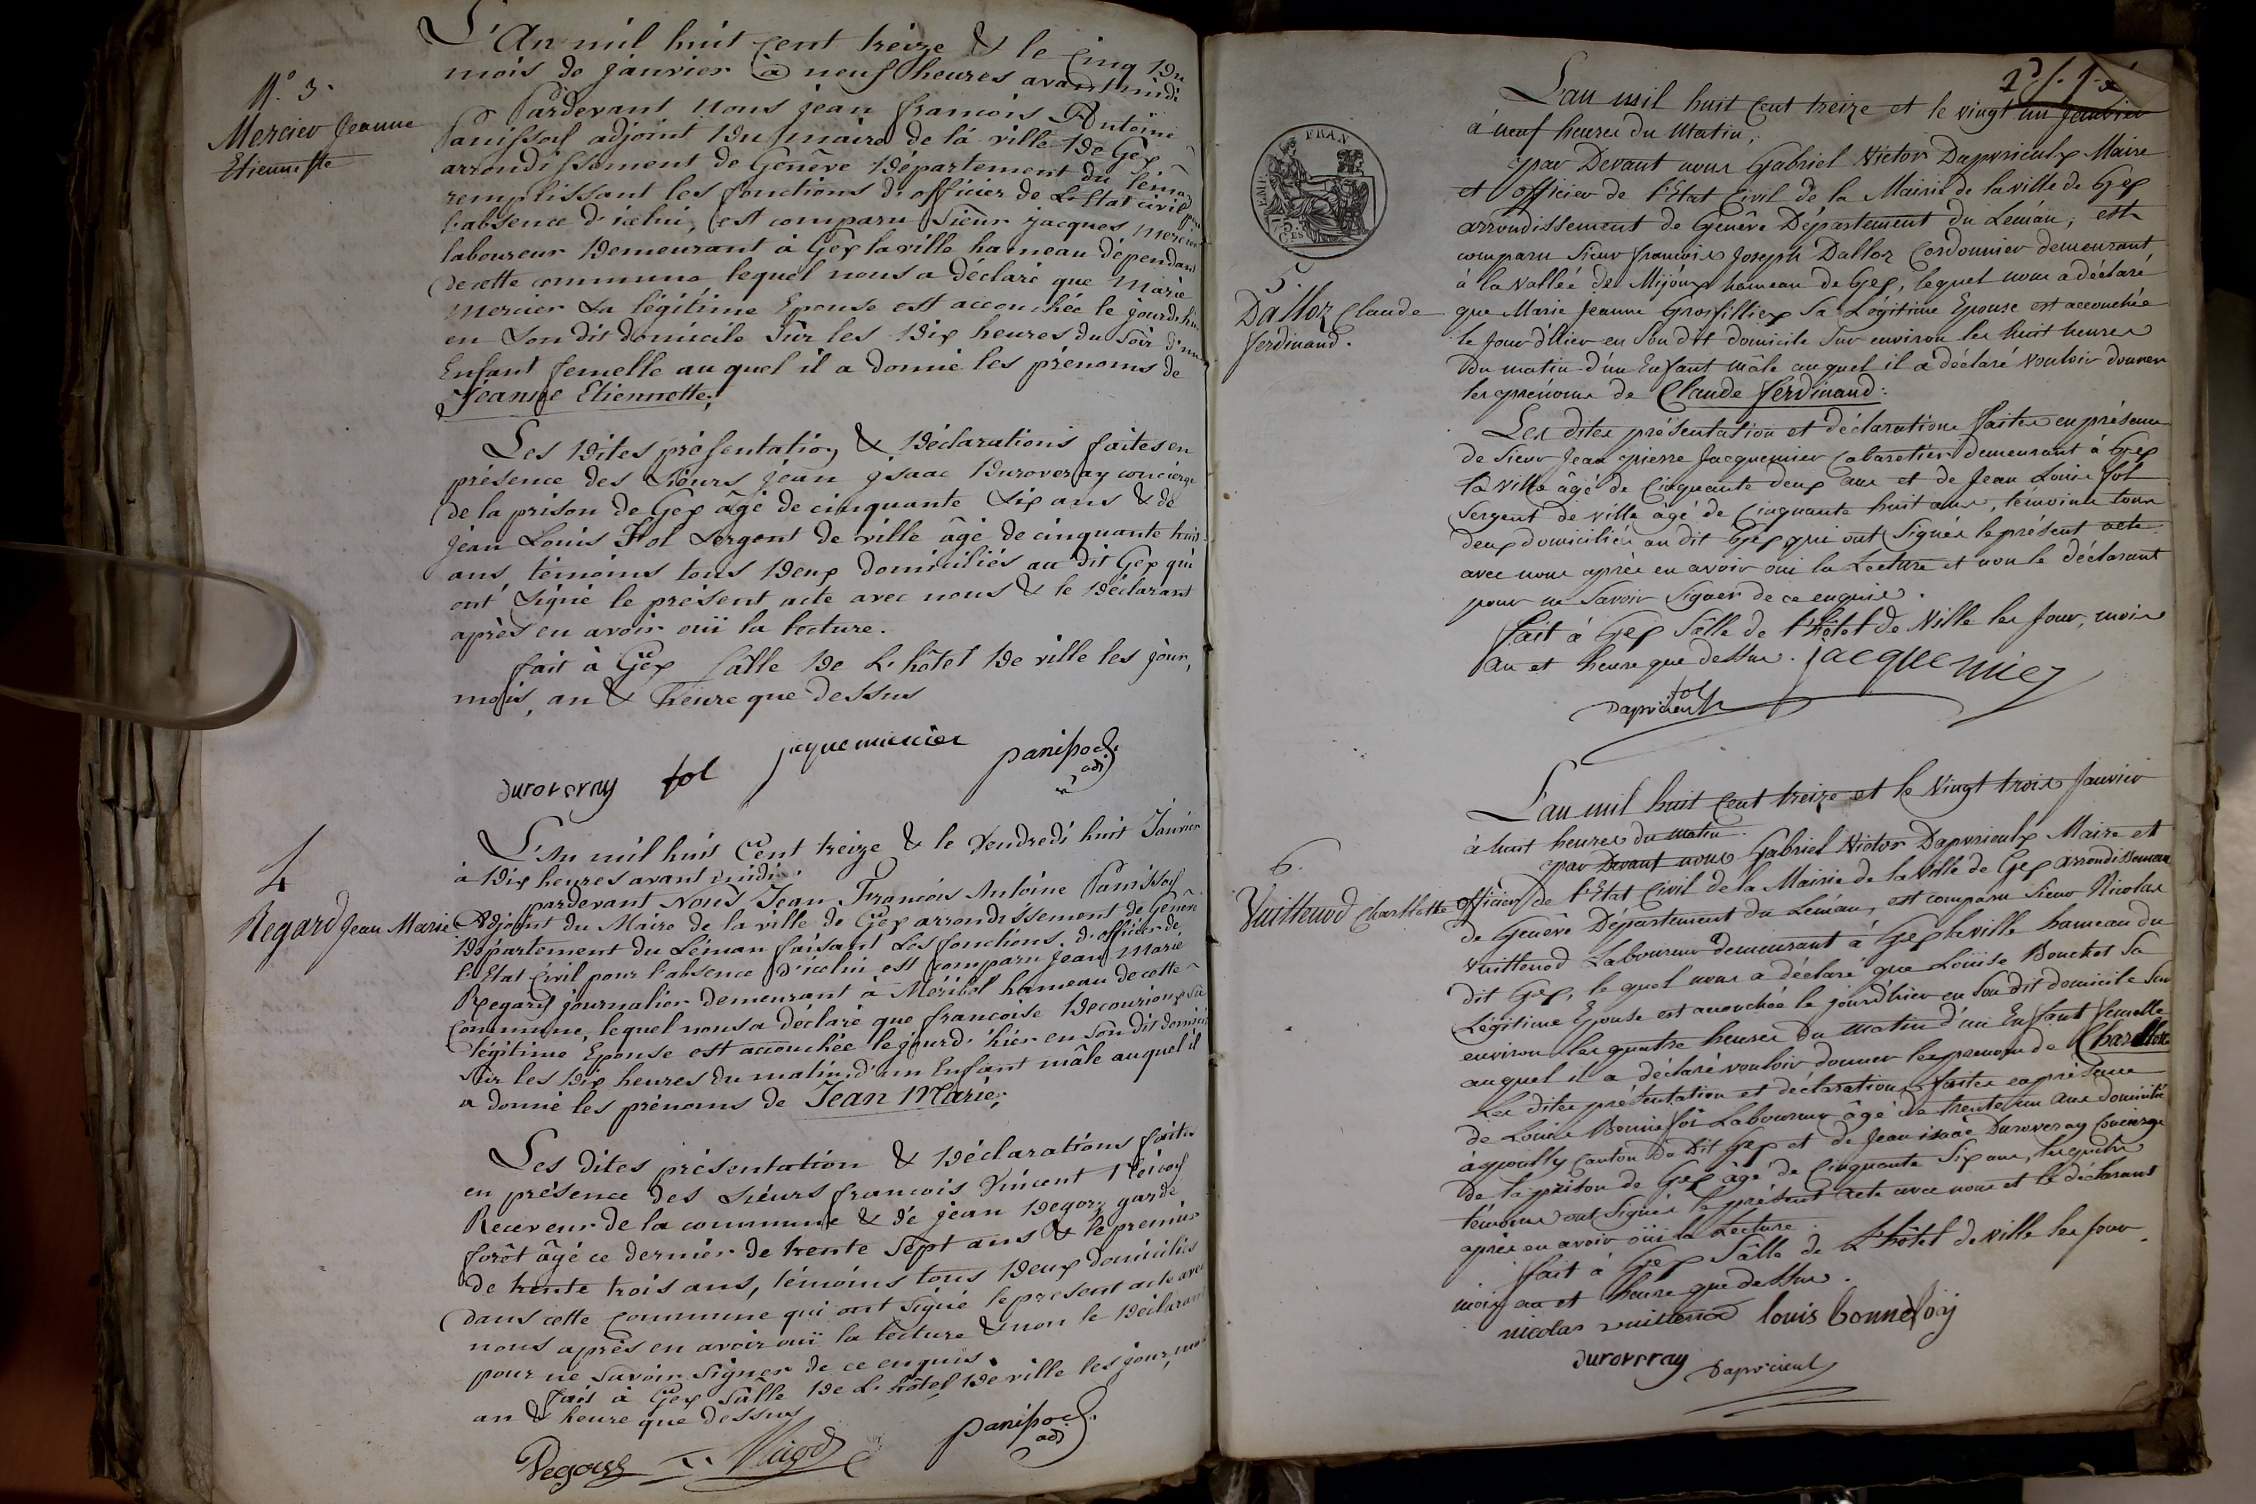 N.° 3.
Mercier Jeanne
Etiennette
L'An mil huit cent treize & le Cinq du
mois de janvier à neuf heures avant midi
Pardevant Nous jean francois Antoine
Panissod adjoint du maire de la ville de Gex
arrondissement de Genève département du Léman
remplissant les fonctions d'officier de L'Etat civil pour
l'absence d'icelui, est comparu Sieur jacques Mercier
laboureur demeurant à Gex la ville hameau dépendant
de cette commune lequel nous a déclaré que Marie
Mercier Sa légitime Epouse est accouchée le jourd'hier
en Son dit domicile Sur les dix heures du Soir d'un
Enfant femelle auquel il a donné les prénoms de
Jeanne Etiennette;
Les dites présentation & déclarations faites en
présence des Sieurs jean jsaac duroveray concierge
de la prison de Gex âgé de cinquante Six ans & de
jean Louis Fol Sergent de ville âgé de cinquante huit
ans, témoins tous deux domiciliés au dit Gex qui
ont Signé le présent acte avec nous & le déclarant
après en avoir ouï la lecture.
fait à Gex Sâlle de L'hôtel de ville les jour,
mois, an & heure que dessus
duroveray fol jaque mercier panissod
adj
4
Regard Jean Marie
L'An mil huit Cent treize & le Vendredi huit Janvier
à dix heures avant midi.
pardevant Nous Jean François Antoine Panissod
Adjoint du Maire de la ville de Gex arrondissement de Genève
Département du Léman faisant Les fonctions d'officier de
l'Etat Civil pour l'absence d'icelui est comparu Jean Marie
Regard journalier demeurant à hameau de cette
Commune, lequel nous a déclaré que francoise sa
légitime Epouse est accouchée le jourd'hier en Son dit domicile
Sur les dix heures du matin d'un Enfant mâle auquel il
a donné les prénoms de Jean Marie;
Les dites présentation & déclarations faites
en présence des Sieurs francois Vincent
Receveur de la commune & de jean degory garde
forêt âgé ce dernier de trente Sept ans & le premier
de trente trois ans, témoins tous deux domiciliés
dans cette commune qui ont Signé le présent acte avec
nous après en avoir ouï la lecture & non le déclarant
pour ne Savoir Signer de ce enquis.
fait à Gex Sâlle de L'hôtel de ville les jour, mois
an & heure que dessus
Degory panissod
adj
L'an mil huit Cent treize et le vingt un Janvier
à neuf heures du Matin;
par Devant nous Gabriel Victor Dapvrieulx Maire
et officier de l'Etat Civil de la Mairie de la ville de Gex
arrondissement de Genève Département du Léman, est
comparu Sieur francois Joseph Dalloz Cordonnier demeurant
à la Vallée de Mijoux hameau de Gex, lequel nous a déclaré
5.
Dalloz Claude
ferdinand.
que Marie Jeanne Grosfilliex Sa Légitime Epouse est accouchée
le Jour d'Hier en Son dit domicile Sur environ les huit heures
du matin d'un Enfant mâle auquel il a déclaré vouloir donner
les prénoms de Claude ferdinand:
Les dites présentation et déclarations faites en présence
de Sieur Jean pierre Jacquemier Cabaretier demeurant à Gex
la ville âgé de Cinquante deux ans et de Jean Louis fol
Sergent de ville âgé de Cinquante huit ans, témoins tous
deux domiciliés au dit Gex qui ont Signés le présent acte
avec nous après en avoir oui la Lecture et non le déclarant
pour ne Savoir Signer de ce enquis.
fait à Gex Sâlle de l'hôtel de Ville les Jour, mois
an et heure que dessus. jacquemier
fol
Dapvrieulx
L'an mil huit Cent treize et le Vingt trois Janvier
à huit heures du matin.
par Devant nous Gabriel Victor Dapvrieulx Maire et
6.
Vuittenod Charlotte
officier de l'Etat Civil de la Mairie de la Ville de Gex arrondissement
de Genève Département du Léman, est comparu Sieur Nicolas
Vuittenod Laboureur demeurant à Gex la ville hameau du
dit Gex, le quel nous a déclaré que Loüise Bouchot Sa
Légitime Epouse est accouchée le jourd'hier en Son dit domicile Sur
environ les quatre heures du matin d'un Enfant femelle
auquel il a déclaré vouloir donner les prenoms de Charlotte
Les dites présentation et déclarations faites en présence
de Louis Bonnefoi Laboureur âgé de trente un ans domicilié
à pouilly Canton du Dit Gex et de Jean isaac Duroveray Concierge
de la prison de Gex âgé de Cinquante Six ans, lesquels
témoins ont Signés le présent acte avec nous et le déclarant
après en avoir oüi la Lecture.
fait à Gex Sâlle de L'hôtel de ville les Jour
mois an et heure que dessus.
nicolas vuittenod louis bonnefoy
duroveray Dapvrieulx